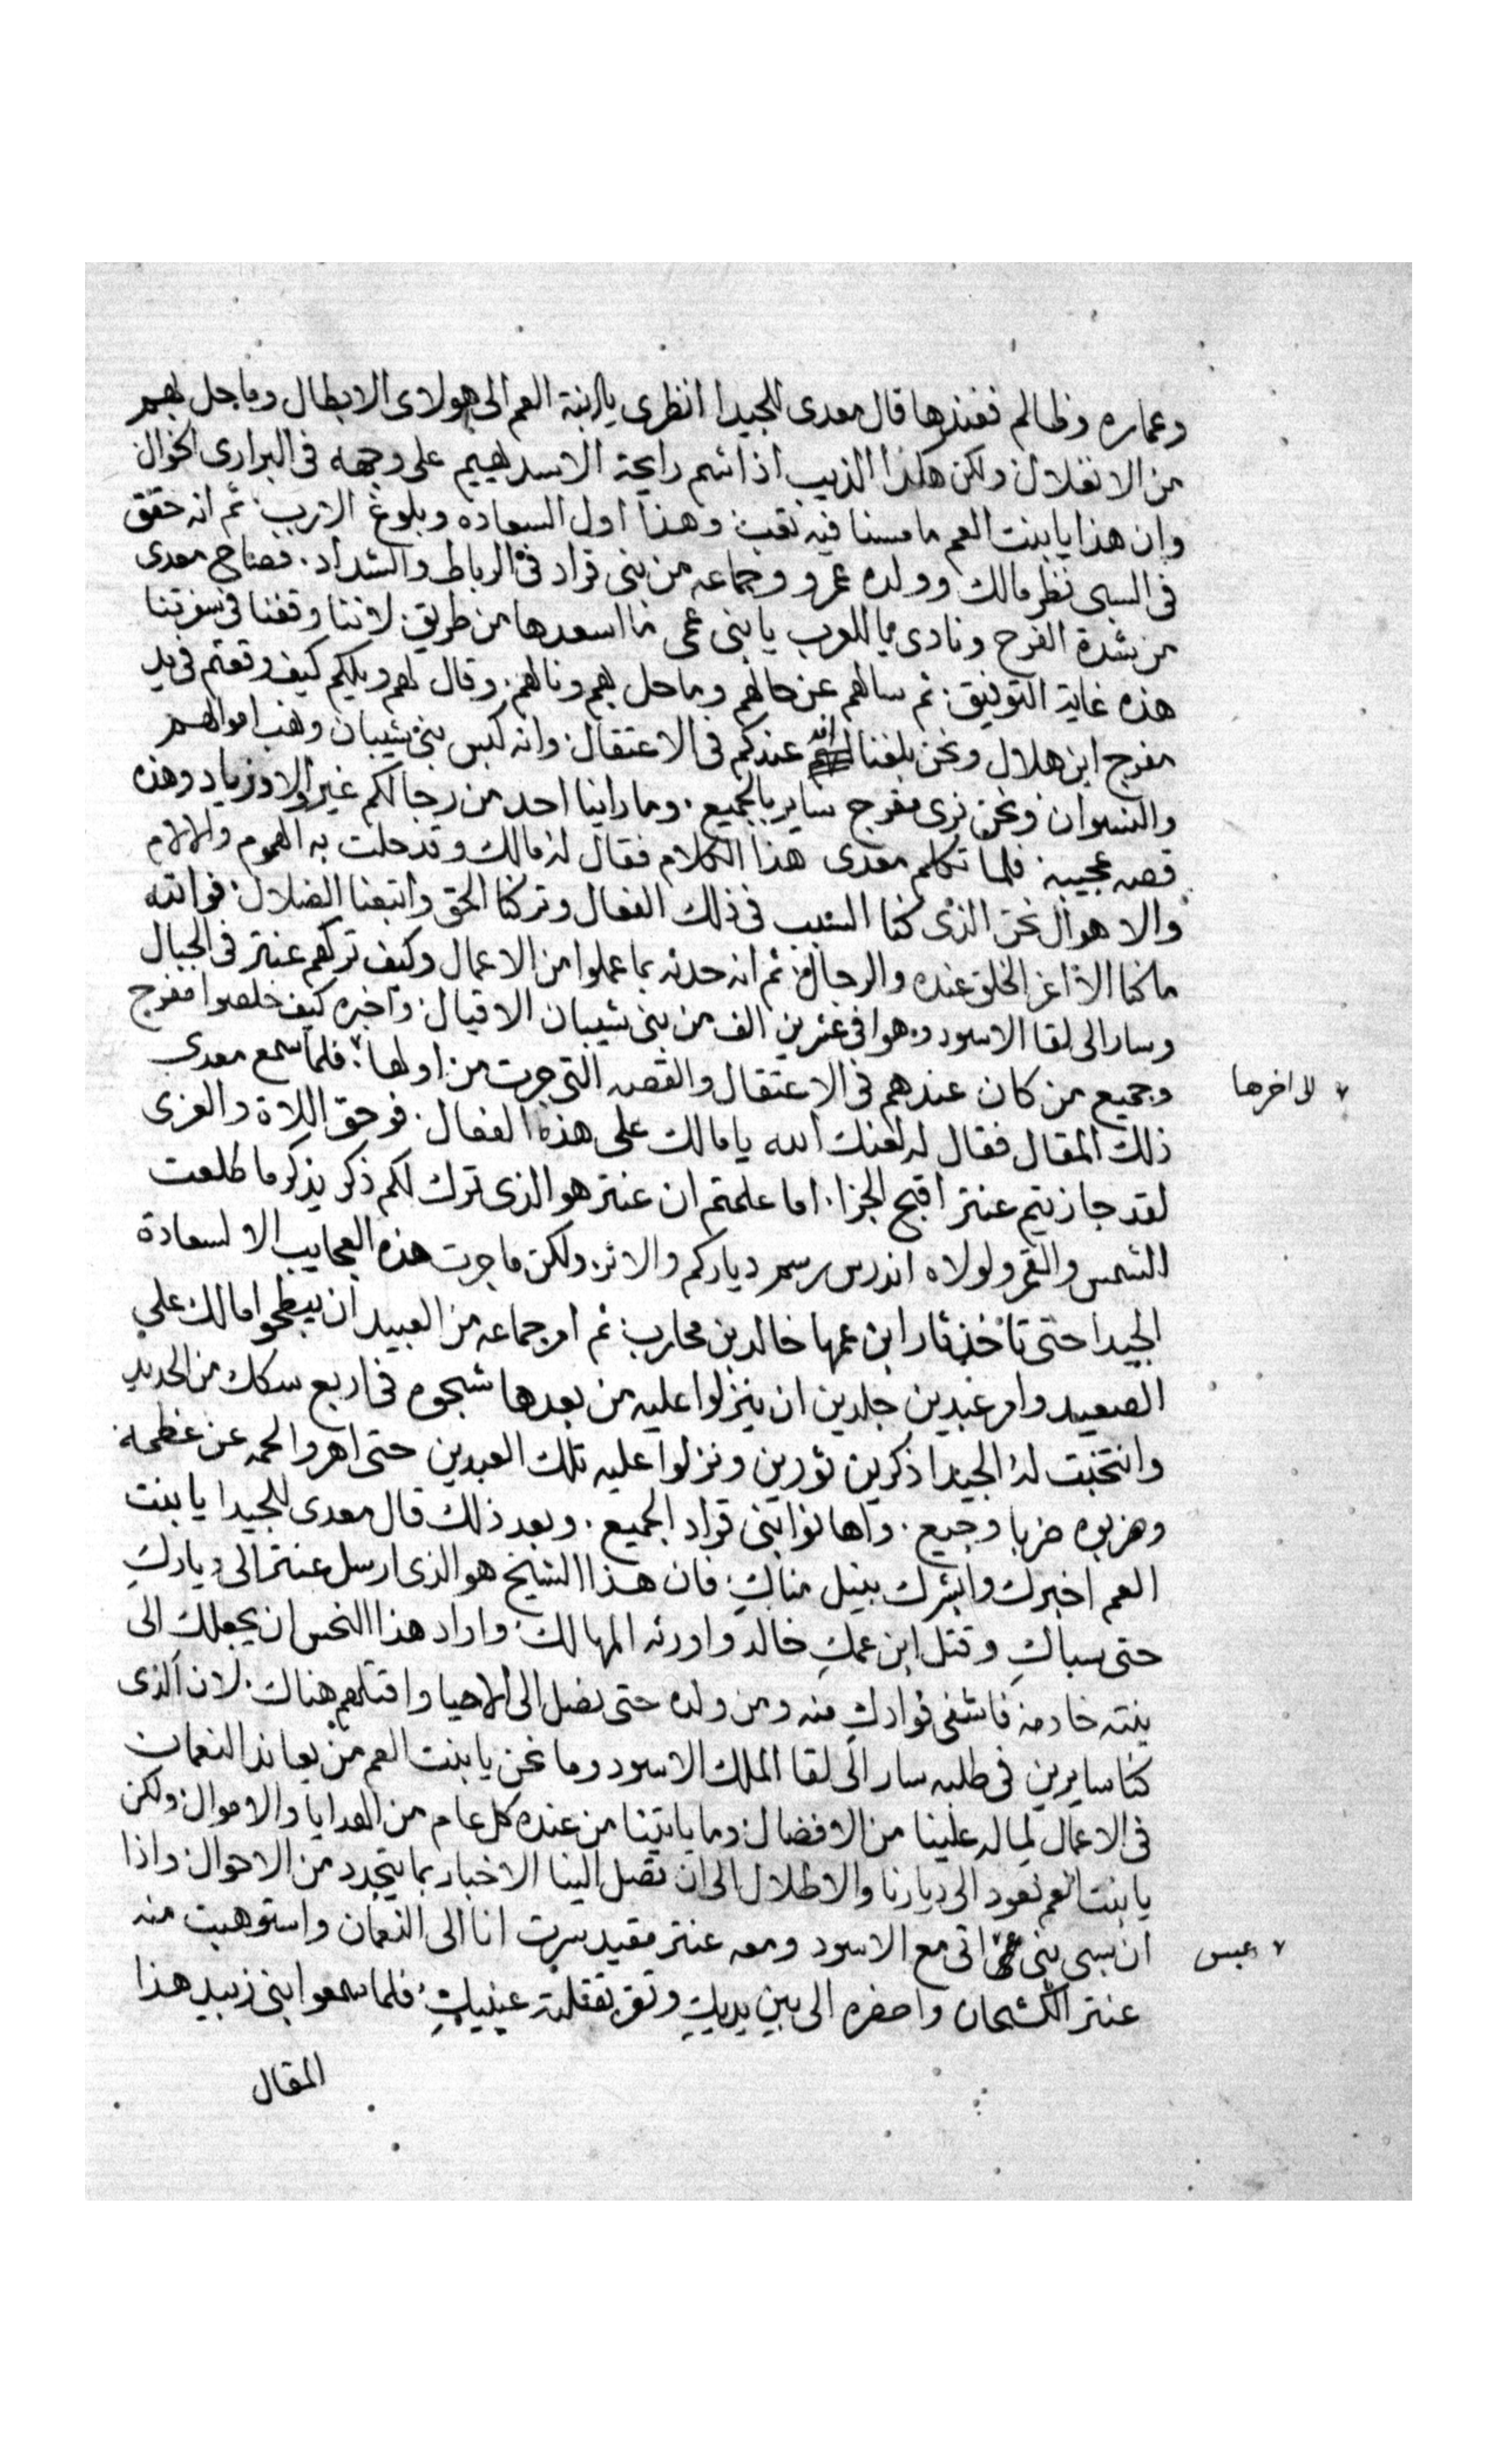 وعماره وظالم فعندها قال معدى للجيدا انظرى يا ابنة العم الى هولاى الابطال وما حل بهم
من الانفلال ولكن هكذا الذيب اذا شم رايحة الاسد يهيم على وجهه فى البرارى الخوال
وان هذا يا بنت العم ما مسنا فيه تعب وهذا اول السعاده وبلوغ الارب ثم انه حقق
فى السبى نظر مالك وولده عمرو وجماعه من بنى قراد فى الرباط والشداد. فصاح معدى
من شدة الفرح ونادى يا للعرب يا بنى عمى ما اسعدها من طريق لاننا وقفنا فى سفرتنا
هذه غاية التوفيق ثم سالهم عن حالهم وما حل بهم ونالهم. وقال لهم ويلكم كيف وقعتم فى يد
مفرج ابن هلال ونحن بلغنا انه عندكم فى الاعتقال وانه كبس بنى شيبان ونهب اموالهم
والنسوان ونحن نرى مفرج ساير بالجميع. وما راينا احد من رجالكم غير اولاد زياد وهذه
قصه عجيبه فلما تكلم معدى هذا الكلام فقال له مالك وقد حلت به الهموم والالام
والاهوال نحن الذى كنا السبب فى ذلك الفعال وتركنا الحق واتبعنا الضلال فوالله
ما كنا الا اعز الخلق عنده والرجال ثم انه حدثه بما عملوا من الاعمال وكيف تركهم عنتر فى الجبال
وسار الى لقا الاسود وهوا فى عشرين الف من بنى شيبان الاقيال واخبره كيف خلصوا مفرج
وجميع من كان عندهم فى الاعتقال والقصه التى جرت من اولها ٧ فلما سمع معدى
٧ الى اخرها
ذلك المقال فقال له لعنك الله يا مالك على هذه الفعال. فوحق اللاة والعزى
لقد جازيتم عنتر اقبح الجزا. اما علمتم ان عنتر هو الذى ترك لكم ذكر يذكر ما طلعت
الشمس والقمر ولولاه اندرس رسم دياركم والاثر ولكن ما جرت هذه العجايب الا لسعادة
الجيدا حتى تاخذ ثار ابن عمها خالد بن محارب ثم امر جماعه من العبيد ان يبطحوا مالك على
الصعيد وامر عبدين جلدين ان ينزلوا عليه من بعدها شبحوه فى اربع سكك من الحديد
وانتخبت له الجيدا ذكرين ثورين ونزلوا عليه تلك العبدين حتى اهروا لحمه عن عظمه
وضربوه ضربا وجيع. واهانوا بنى قراد الجميع. وبعد ذلك قال معدى للجيدا يا بنت
العم اخبرك وابشرك بنيل مناكِ فان هذا الشيخ هو الذى ارسل عنتر الى دياركِ
حتى سباكِ وقتل ابن عمكِ خالد واورثه المهالك واراد هذا النحس ان يجعلك الى
بنته خادمه فاشفى فوادكِ منه ومن ولده حتى نصل الى الاحيا واقتلهم هناك. لان الذى
كنا سايرين فى طلبه سار الى لقا الملك الاسود وما نحن يا بنت العم من يعاند النعمان
فى الاعمال لما له علينا من الافضال وما ياتينا من عنده كل عام من الهدايا والاموال ولكن
يا بنت العم نعود الى ديارنا والاطلال الى ان تصل الينا الاخبار بما يتجدد من الاحوال واذا
ان سبى بنى ٧ اتى مع الاسود ومعه عنتر مقيد سرت انا الى النعمان واستوهبت منه
٧ عبس
عنتر الكشحان واحضره الى بين يديكِ وتقر بقتلته عينيكِ فلما سمعوا بنى زبيد هذا
المقال